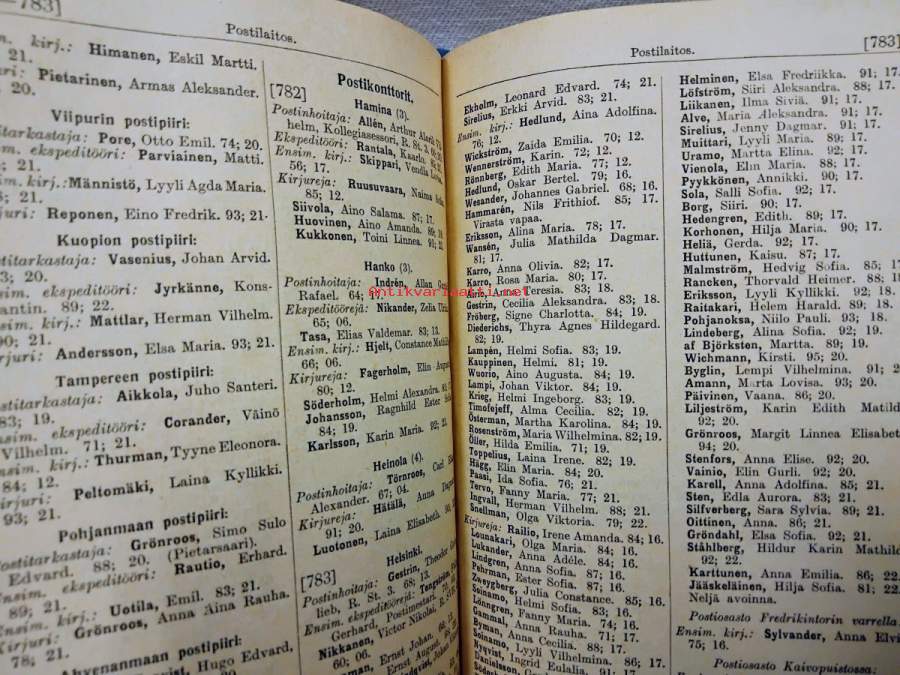 —783]
Postilaitos.
sim. kirj.: Himanen, Eskil Martti.
21.
Pietarinen, Armas Aleksander.
20.
Viipurin postipiiri:
titarkastaja: Pore, Otto Emil. 74; 20.
ekspeditööri: Parviainen, Matti.
21.
sim. kirj.: Männistö, Lyyli Agda Maria.
21.
juri: Reponen, Eino Fredrik. 93; 21.
Kuopion postipiiri:
stitarkastaja: Vasenius, Johan Arvid.
3; 20.
sim. ekspeditööri: Jyrkänne, Kons-
antin. 89; 22.
sim. kirj.: Mattlar, Herman Vilhelm.
90; 21.
irjuri: Andersson, Elsa Maria. 93; 21.
Tampereen postipiiri:
stitarkastaja: Aikkola, Juho Santeri.
83; 19.
nsim. ekspeditööri: Corander, Väinö
Vilhelm. 71; 21.
nsim. kirj.: Thurman, Tyyne Eleonora.
84; 12.
irjuri: Peltomäki, Laina Kyllikki.
93; 21.
Pohjanmaan postipiiri:
Postitarkastaja: Grönroos, Simo Sulo
Edvard. 88; 20. (Pietarsaari).
Ensim. ekspeditööri: Rautio, Erhard.
89; 21.
Ensim. kirj.: Uotila, Emil. 83; 21.
Kirjuri: Grönroos, Anna Aina Rauha.
78; 21.
Ahvenanmaan postipiiri:
Hugo Edvard,
Postikonttorit.
[782]
Hamina (3).
Postinhoitaja: Allén, Arthur
helm, Kollegiasessori, R. St. 3.
Ekspeditööri: Rantala, Kaarlo.
Ensim. kirj.: Skippari, Vendla
56; 17.
Kirjureja: Ruusuvaara, Naima
85; 12.
Siivola, Aino Salama. 87; 17.
Huovinen, Aino Amanda. 89;
Kukkonen, Toini Linnea. 91; 22
Hanko (3).
Postinhoitaja: Indrén, Allan
Rafael. 64;
Ekspeditöörejä: Nikander, Zelia
65; 06.
Tasa, Elias Valdemar. 83; 13.
Ensim. kirj.: Hjelt, Constance
66; 06.
Kirjureja: Fagerholm, Elin
80; 12.
Söderholm, Helmi Alexandra.
Johansson, Ragnhild Ester
84; 19.
Karlsson, Karin Maria. 92; 21
Heinola (4).
Postinhoitaja: Törnroos, Carl
Alexander. 67; 04.
Kirjureja: Hätälä, Anna
91; 20.
Luotonen, Laina Elisabeth.
Helsinki.
[783]
Postinhoitaja: Gestrin, Theodor
lieb, R. St. 3. 68; 13.
Ensim. ekspeditöörejä:
Gerhard, Postimestari.
Nikkanen, Victor Nikolai.
60; 06.
Ernst Johan.
Ernst August
Johan
Antikvariaatti.net
Postilaitos.
[783]
Ekholm, Leonard Edvard. 74; 21.
Sirelius, Erkki Arvid. 83; 21.
Ensim. kirj.: Hedlund, Aina Adolfina.
76; 12.
Wickström, Zaida Emilia. 70; 12.
Wennerström, Karin. 72; 12.
Rönnberg, Edith Maria. 77; 12.
Hedlund, Oskar Bertel. 79; 16.
Wesander, Johannes Gabriel. 68; 16.
Hammarén, Nils Frithiof. 85; 17.
Virasta vapaa.
Eriksson, Alina Maria. 78; 17.
Wansén, Julia Mathilda Dagmar.
81; 17.
Karro, Anna Olivia. 82; 17.
Karro, Rosa Maria. 80; 17.
Airio, Anna Teresia. 83; 18.
Gestrin, Cecilia Aleksandra. 83; 18.
Fröberg, Signe Charlotta. 84; 19.
Diederichs, Thyra Agnes Hildegard.
82; 19.
Lampén, Helmi Sofia. 83; 19.
Kauppinen, Helmi. 81; 19.
Wuorio, Aino Augusta. 84; 19.
Lampi, Johan Viktor. 84; 19.
Krieg, Helmi Ingeborg. 83; 19.
Timofejeff, Alma Cecilia. 82; 19.
Österman, Martha Karolina. 84; 19.
Rosenström, Maria Wilhelmina. 82; 19.
Öller, Hilda Emilia. 71; 19.
Toppelius, Laina Irene. 82; 19.
Hägg, Elin Maria. 84; 20.
Paasi, Ida Sofia. 76; 21.
Tervo, Fanny Maria. 77; 21.
Ingvall, Herman Vilhelm. 88; 21.
Snellman, Olga Viktoria. 79; 22.
Kirjureja: Railio, Irene Amanda. 84; 16.
Lounakari, Olga Maria. 84; 16.
Lukander, Anna Adéle. 84; 16.
Lindgren, Anna Sofia. 87; 16.
Pehrman, Ester Sofia. 87; 16.
Zweygberg, Julia Constance. 85; 16.
Soinamo, Helmi Sofia. 83; 16.
Lönngren, Fanny Maria. 74; 16.
Gammal, Anna Rauha. 71; 17.
Byman, Anna Cecilia. 88; 17.
Soinamo, Lyyli Vilhelmina. 86; 17.
Nyqvist, Ingrid Eulalia. 91; 17.
Danielsson,
Helminen, Elsa Fredriikka. 91; 17.
Löfström, Siiri Aleksandra. 88; 17.
Liikanen, Ilma Siviä. 91; 17.
Alve, Maria Aleksandra. 91; 17.
Sirelius, Jenny Dagmar. 91; 17.
Muittari, Lyyli Maria. 89; 17.
Uramo, Martta Elina. 92; 17.
Vienola, Elin Maria. 88; 17.
Pyykkönen, Annikki. 90; 17.
Sola, Salli Sofia. 92; 17.
Borg, Siiri. 90; 17.
Hedengren, Edith. 89; 17.
Korhonen, Hilja Maria. 90; 17.
Heliä, Gerda. 92; 17.
Huttunen, Kaisu. 87; 17.
Malmström, Hedvig Sofia. 85; 17
Rancken, Thorvald Heimer. 88; 18
Eriksson, Lyyli Kyllikki. 92; 18
Raitakari, Helem Harald. 89; 18
Pohjanoksa, Niilo Pauli. 93; 18
Lindeberg, Alina Sofia. 92; 19
af Björksten, Martta. 89; 19.
Wichmann, Kirsti. 95; 20.
Byglin, Lempi Vilhelmina. 91; 2
Amann, Marta Lovisa. 93; 20.
Päivinen, Vaana. 86; 20.
Liljeström, Karin Edith Matild
92; 20.
Grönroos, Margit Linnea Elisabet
94; 20.
Stenfors, Anna Elise. 92; 20.
Vainio, Elin Gurli. 92; 20.
Karell, Anna Adolfina. 85; 21.
Sten, Edla Aurora. 83; 21.
Silfverberg, Sara Sylvia. 89; 21.
Oittinen, Anna. 86; 21.
Gröndahl, Elsa Sofia. 92; 21.
Ståhlberg, Hildur Karin Mathild
92; 22.
Karttunen, Anna Emilia. 86; 22.
Jääskeläinen, Hilja Sofia. 81; 22.
Neljä avoinna.
Postiosasto Fredrikintorin varrella.
Ensim. kirj.: Sylvander, Anna Elvi
75; 16.
Postiosasto Kaivopuistossa: